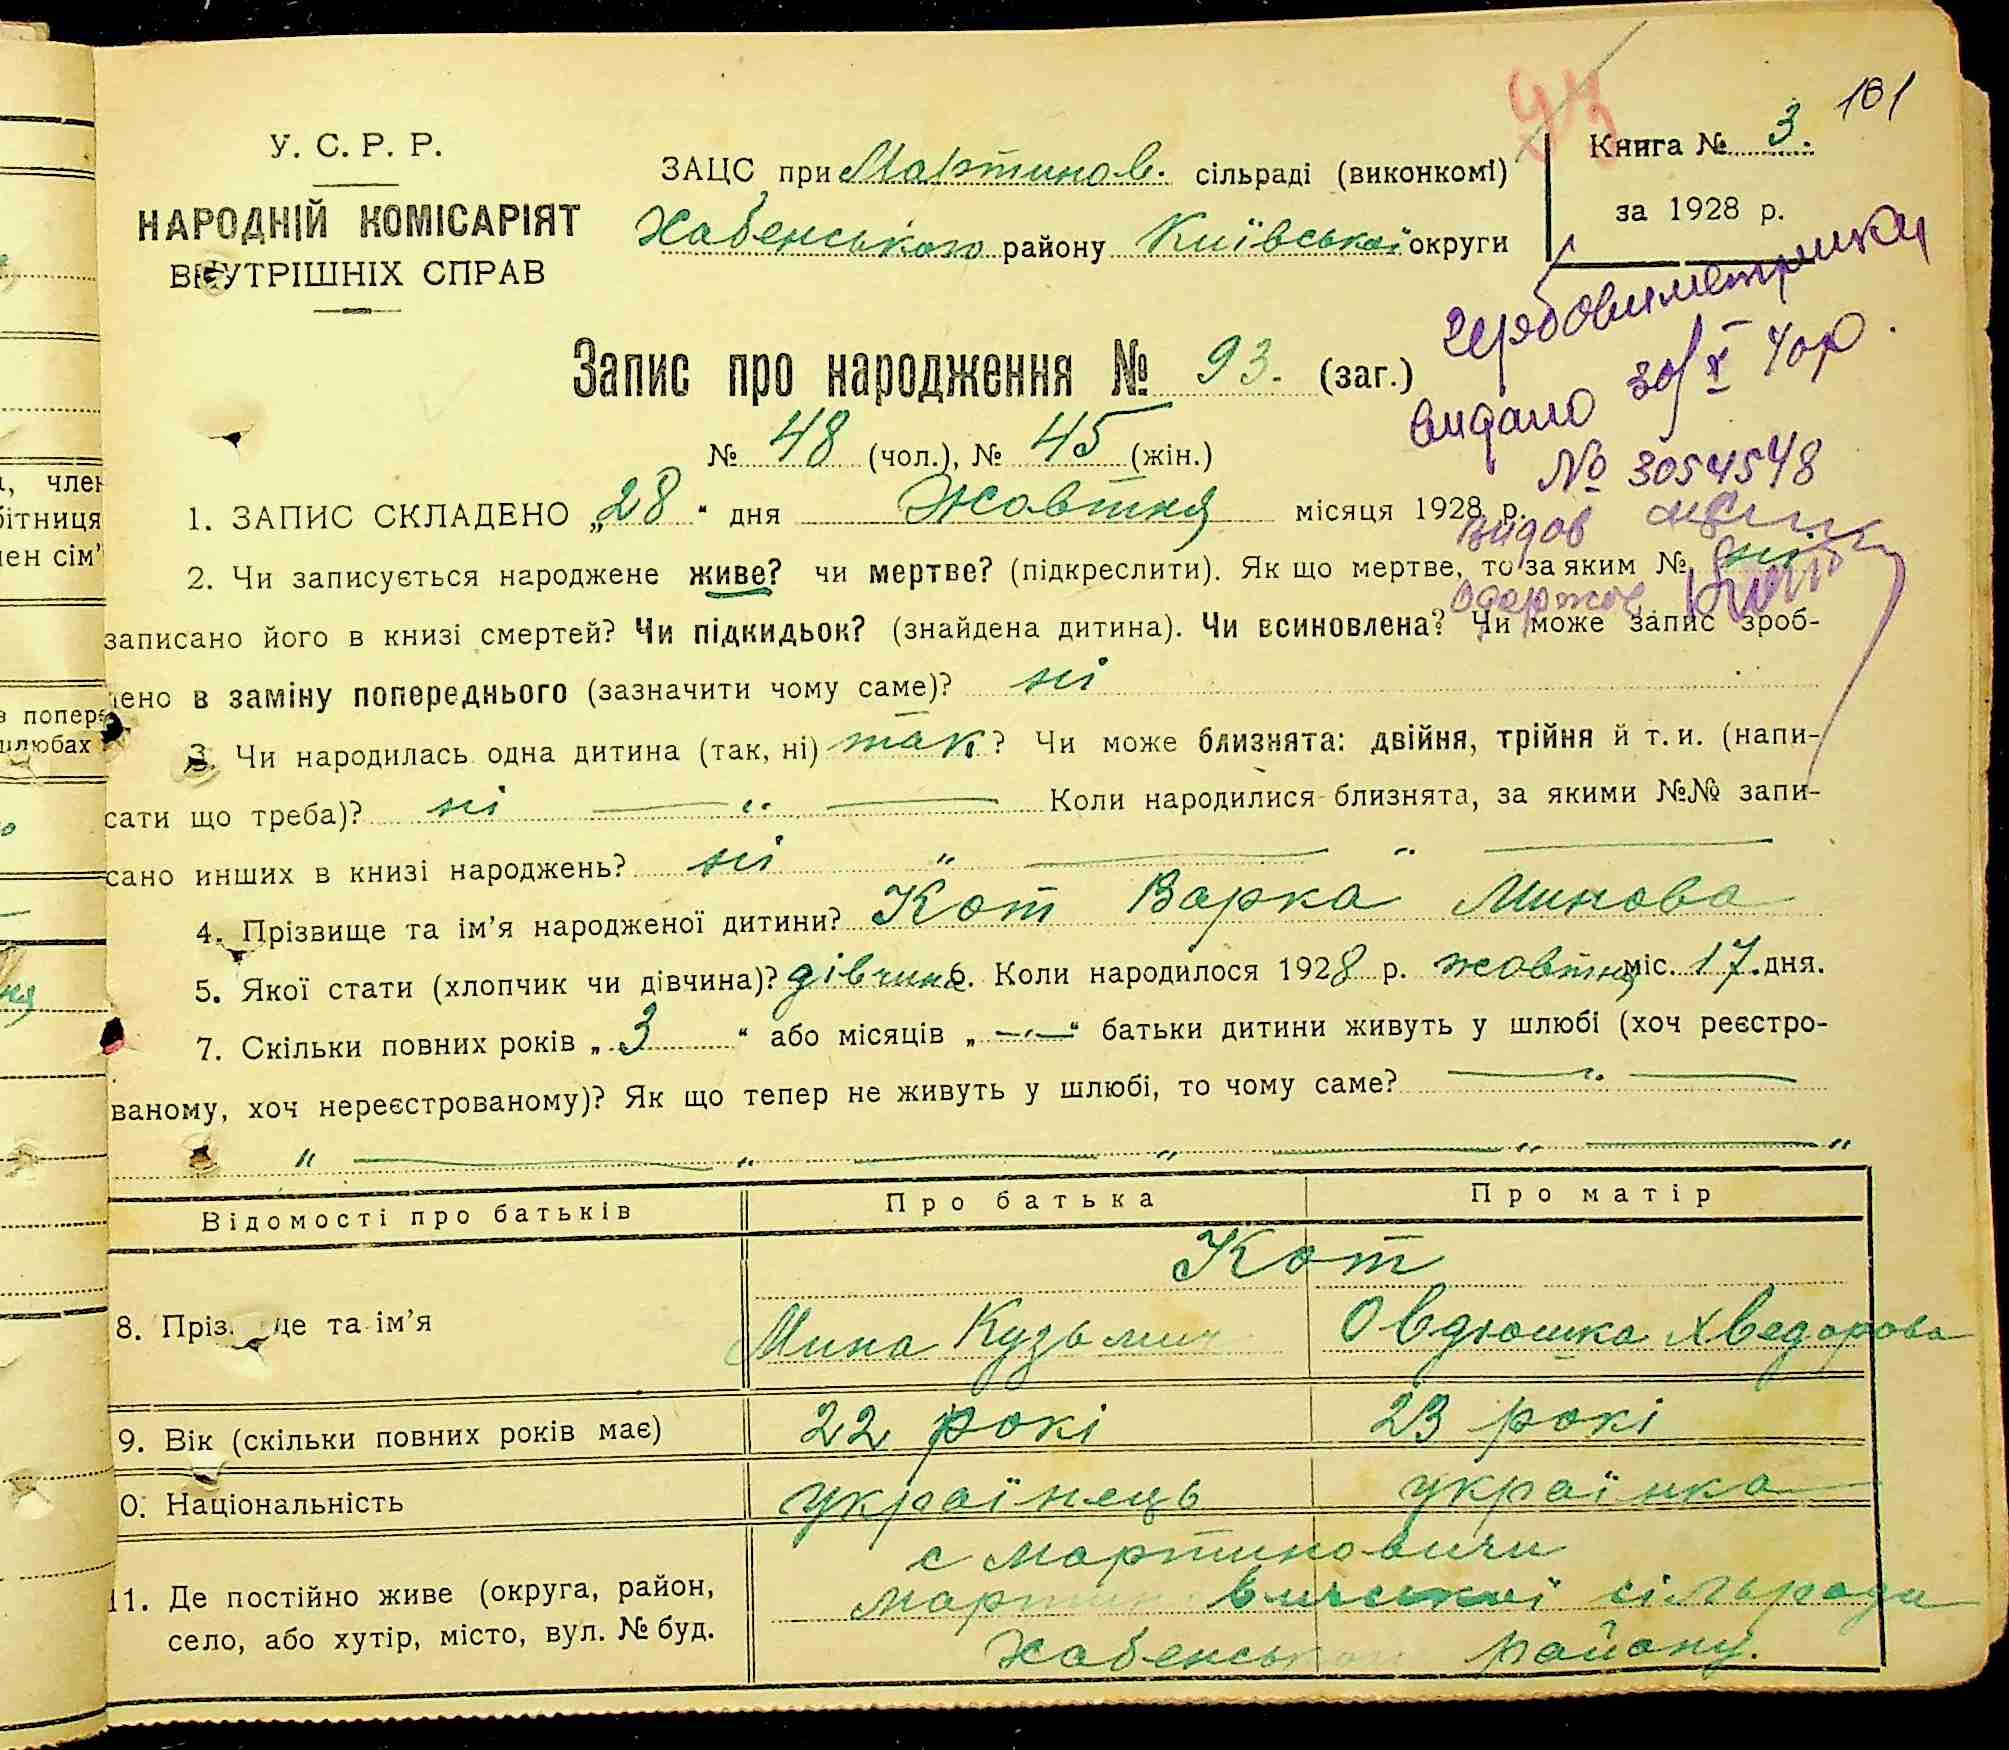 161
У. С. Р. Р.
НАРОДНІЙ КОМІСАРІЯТ
ВНУТРІШНІХ СПРАВ
ЗАЦС при Мартинов. сільраді (виконкомі)
Хабенського району Київської округи
Книга № 3.
за 1928 р.
Запис про народження № 93. (заг.)
№ 48 (чол.), № 45 (жін.)
видано 30/X 40р.
№ 3054548
видов
одержав
1. ЗАПИС СКЛАДЕНО „28" дня Жовтня місяця 1928 р.
2. Чи записується народжене живе? чи мертве? (підкреслити). Як що мертве, то за яким № ні
записано його в книзі смертей? Чи підкидьок? (знайдена дитина). Чи всиновлена? Чи може запис зроб-
лено в заміну попереднього (зазначити чому саме)? ні
3. Чи народилась одна дитина (так, ні) так? Чи може близнята: двійня, трійня й т. и. (напи-
сати що треба)? ні — „ — Коли народилися близнята, за якими №№ запи-
сано инших в книзі народжень? ні „ — „ —
4. Прізвище та ім'я народженої дитини? Кот Варка Минова
5. Якої стати (хлопчик чи дівчина)? дівчина 6. Коли народилося 1928 р. жовтня міс. 17. дня.
7. Скільки повних років „3" або місяців „—„—" батьки дитини живуть у шлюбі (хоч реєстро-
ваному, хоч нереєстрованому)? Як що тепер не живуть у шлюбі, то чому саме? — „ —
„ — „ — „ — „ — „
Відомості про батьків Про батька Про матір
Кот
8. Пріз це та ім'я Мина Кузьмич Овдюшка Хведорова
9. Вік (скільки повних років має) 22 рокі 23 рокі
0. Національність українець українка
с Мартиновичи
11. Де постійно живе (округа, район, Март вичської сільради
село, або хутір, місто, вул. № буд. Хабенсько району.
, член
бітниця
ен сім'
з попер
шлюбах